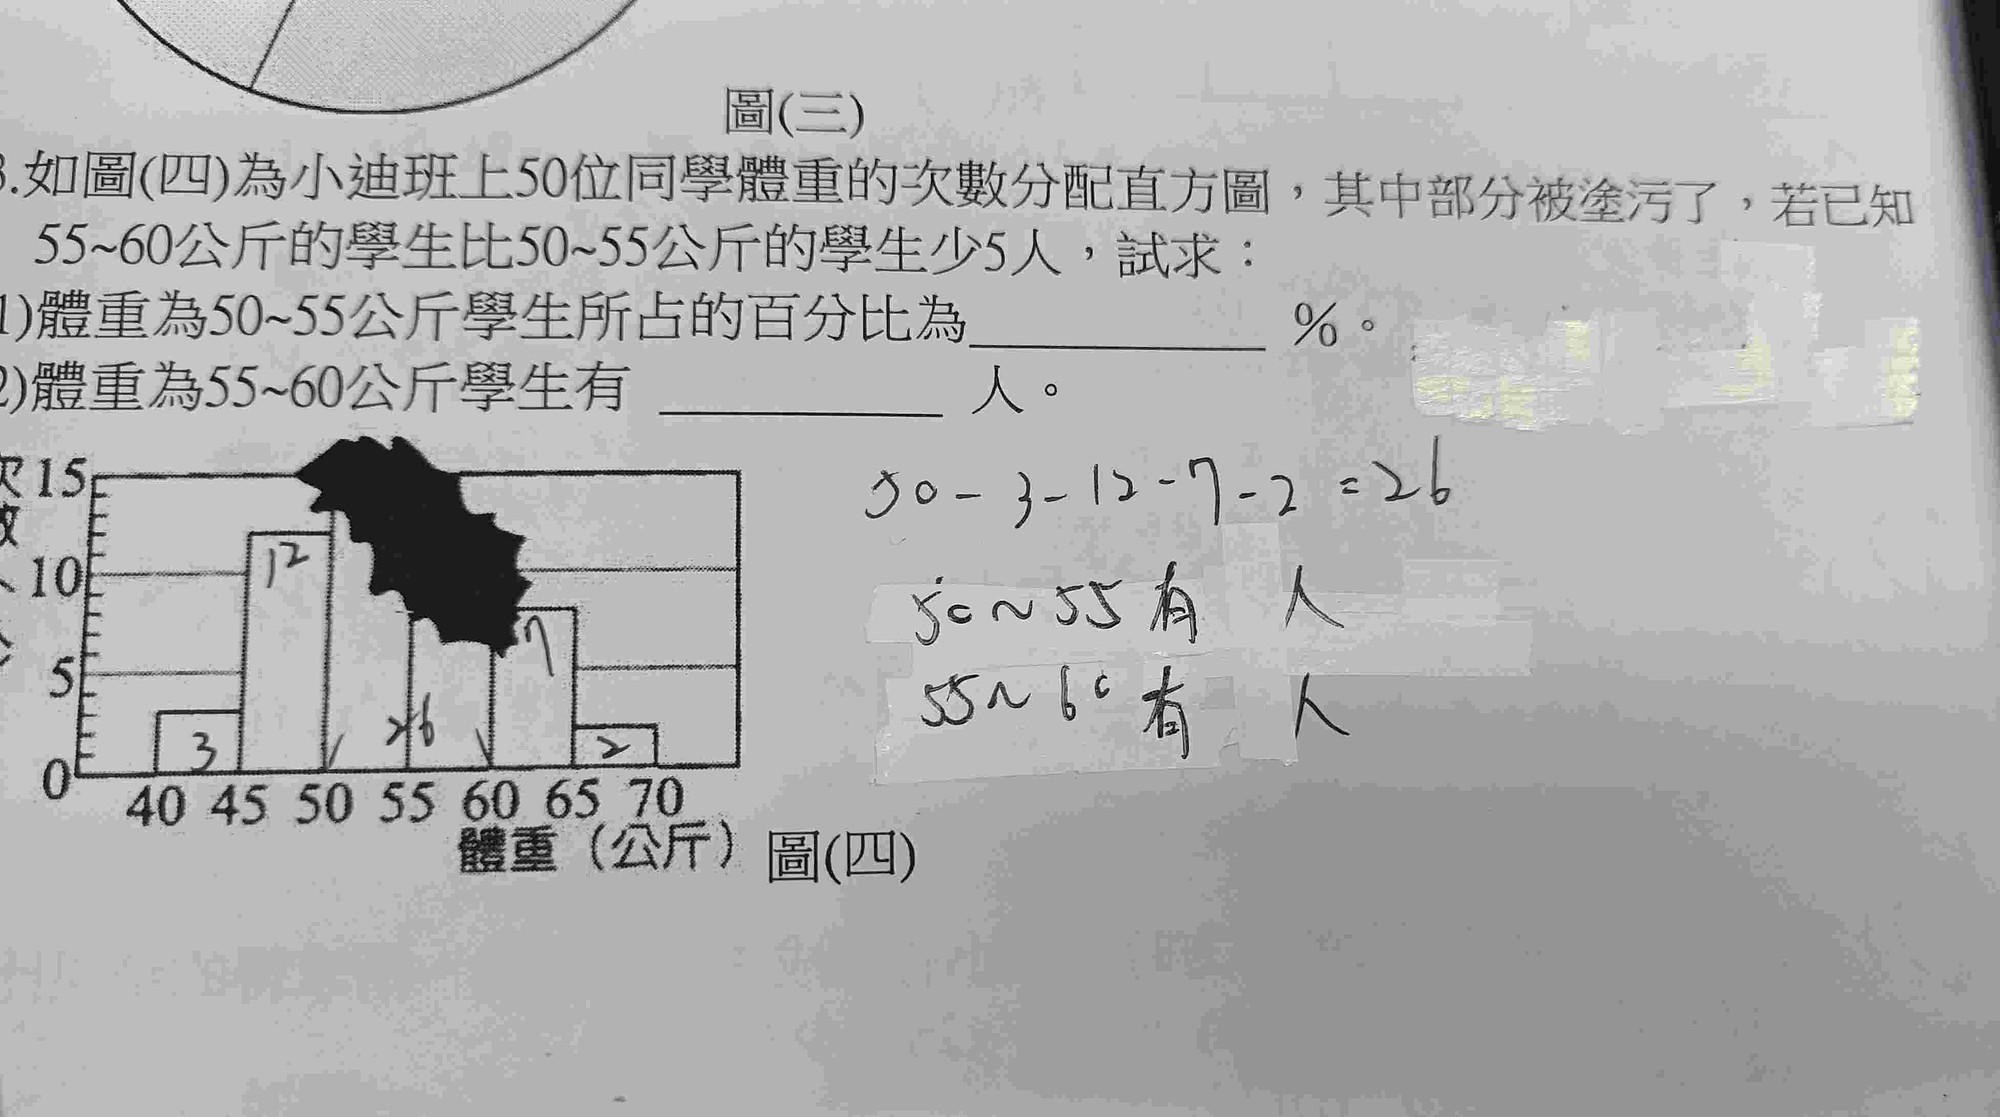 圖(三)
.如圖(四)為小迪班上50位同學體重的次數分配直方圖，其中部分被塗污了，若已知
55~60公斤的學生比50~55公斤的學生少5人，試求：
1)體重為50~55公斤學生所占的百分比為__________ %。
2)體重為55~60公斤學生有 __________ 人。
50-3-12-7-2=26
50~55有 人
55~60有 人
15
10
5
0
12
7
3
26
2
40 45 50 55 60 65 70
體重（公斤）圖(四)